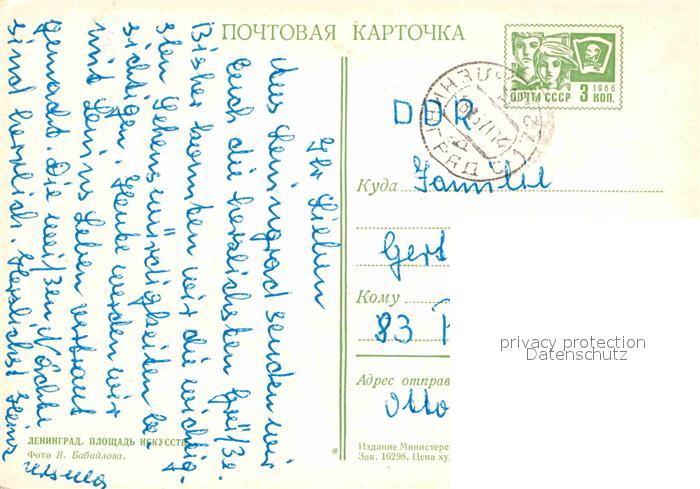 ПОЧТОВАЯ КАРТОЧКА
1966
ПОЧТА СССР 3 КОП.
DDR
Куда Familie
Gers
Кому
83 P
Адрес отправ
Otto
privacy protection
Datenschutz
Ihr Lieben
Aus Leningrad senden wir
Euch die herzlichsten Grüße.
Bisher konnten wir die wichtig-
sten Sehenswürdigkeiten be-
sichtigen. Heute werden wir
mit Lenins Leben vertraut
gemacht. Die weißen Nächte
sind herrlich. Herzlichst Heinz
Ursula
ЛЕНИНГРАД. ПЛОЩАДЬ ИСКУССТВ
Фото В. Бабайлова.
*
Издание Министерс
Зак. 16298. Цена ху